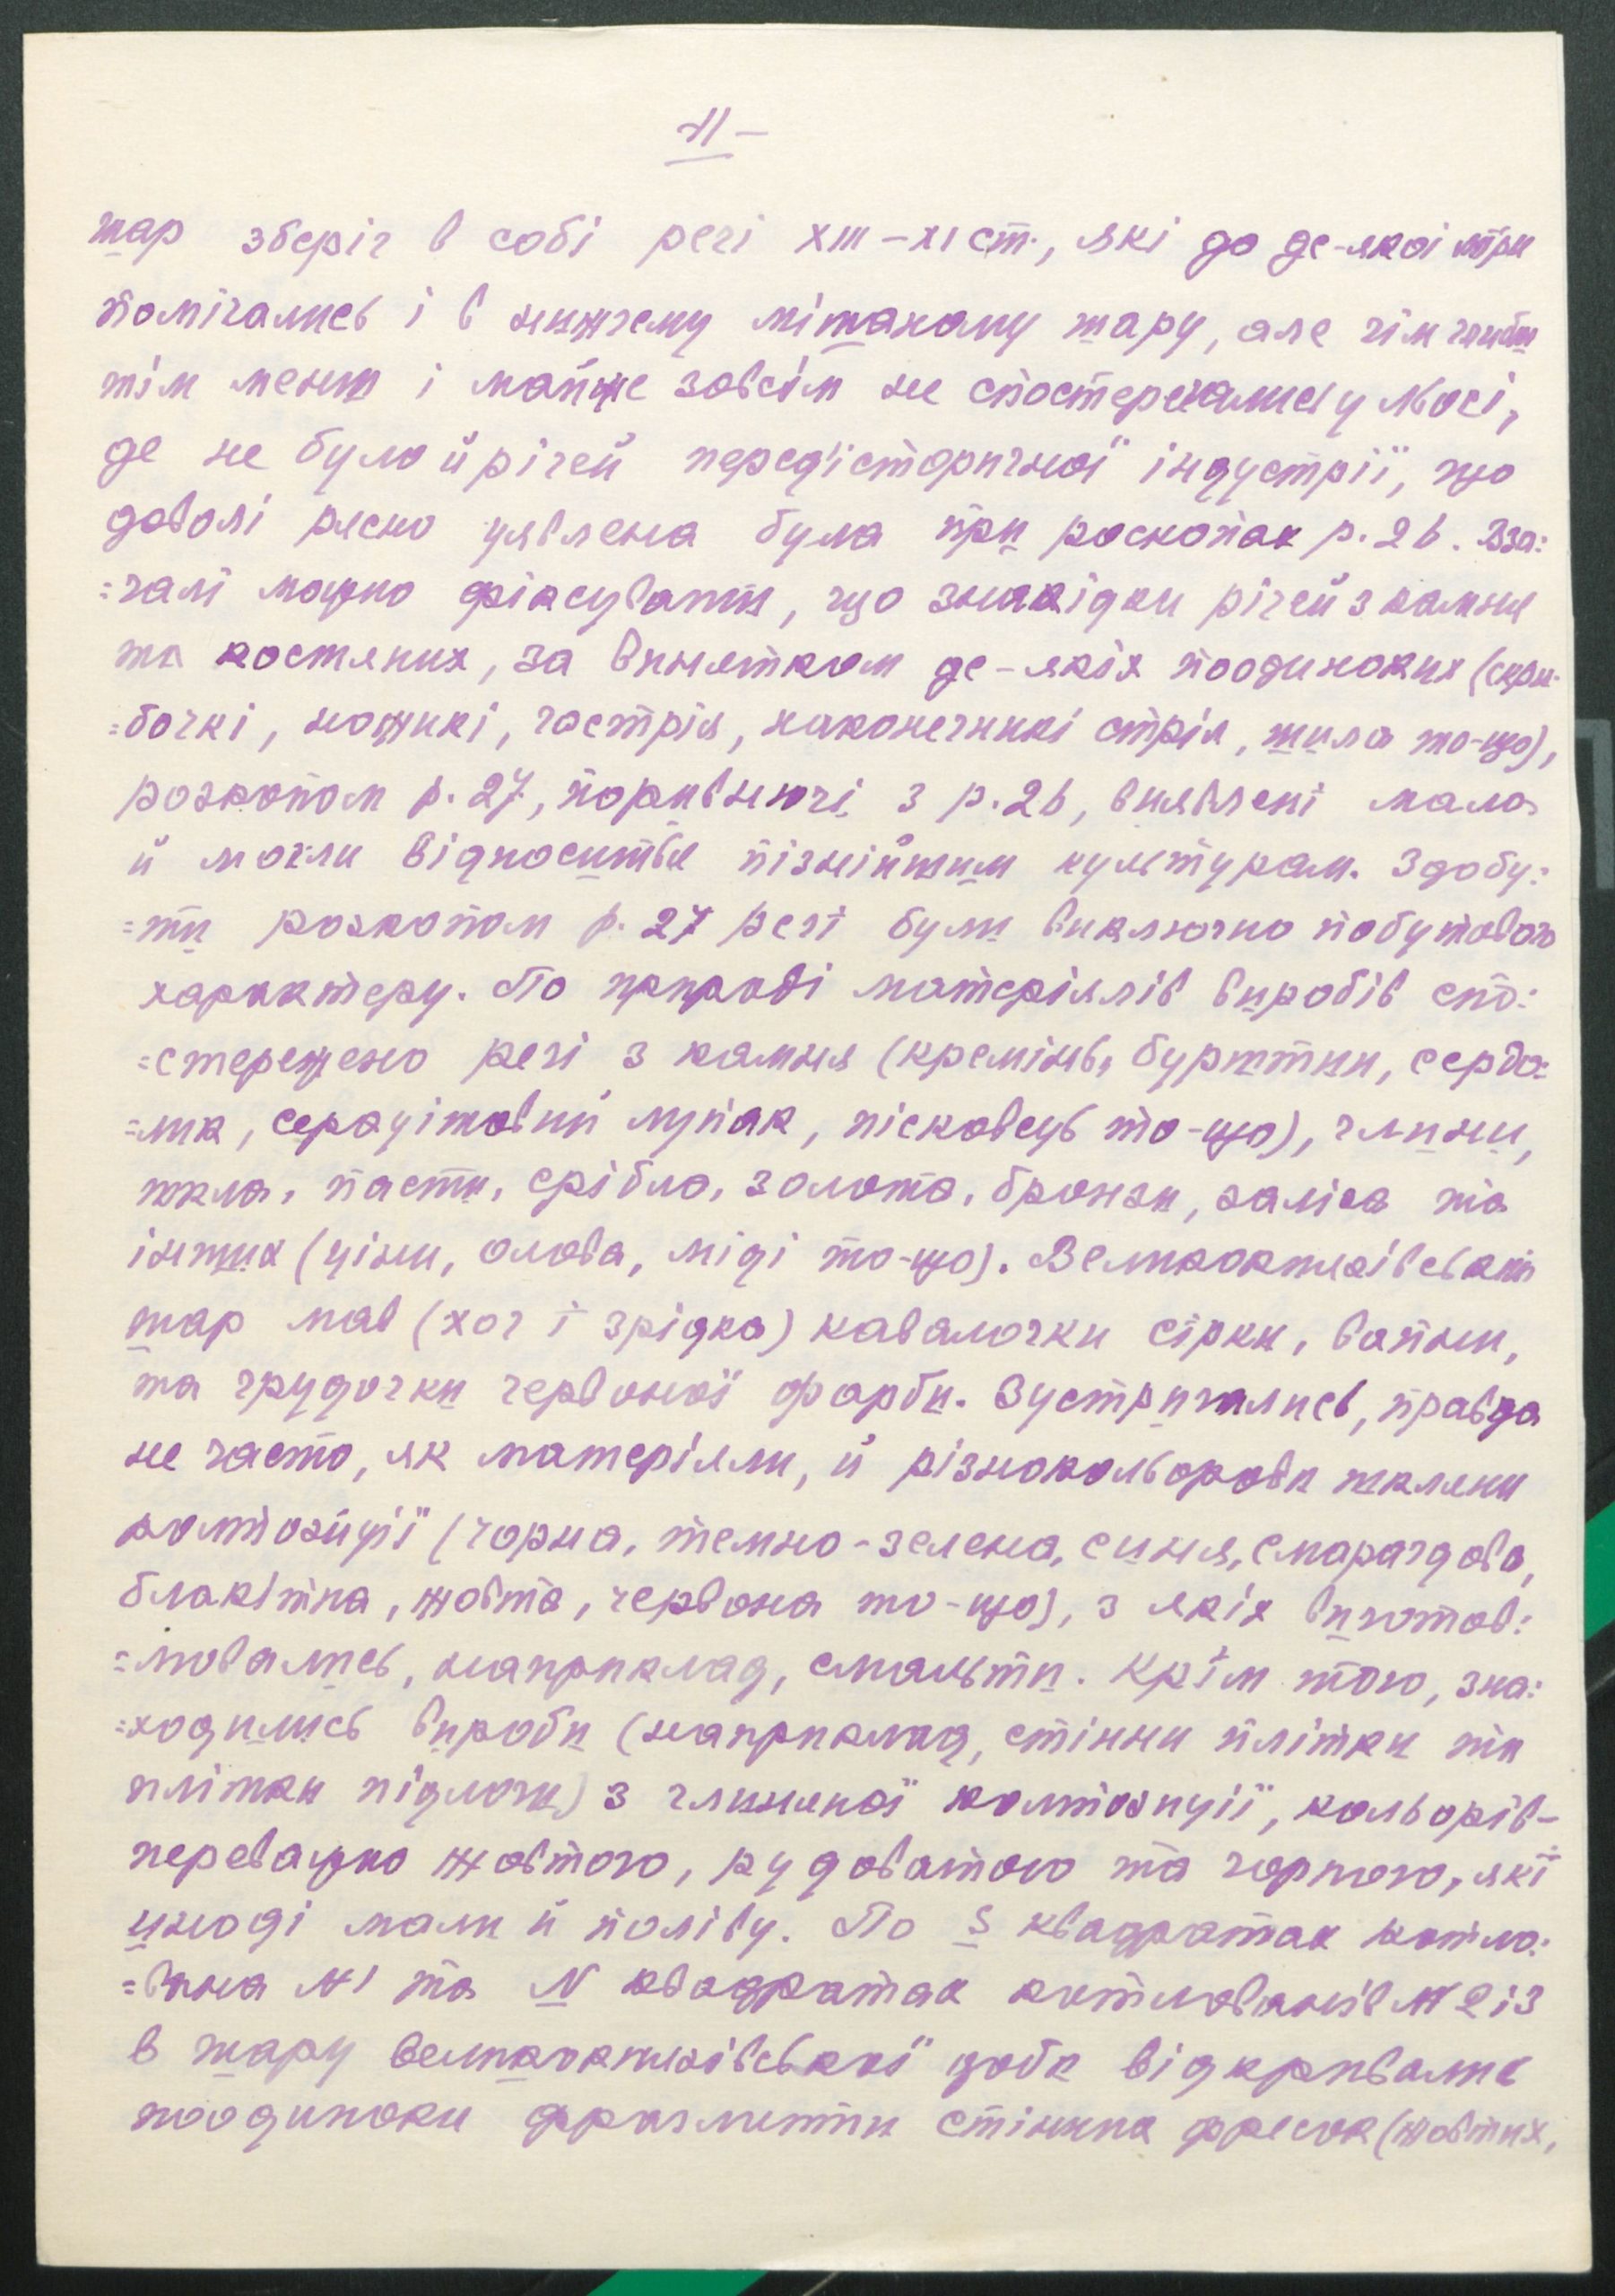 11 –
шар зберіг в собі речі XIII–XI ст., які до де-якої міри
помічались і в нижчему мішаному шару, але чім глибш
тім менш і майже зовсім не спостерегались у льосі,
де не було й річей перед'історичної індустрії, що
доволі рясно уявлена була при роскопах р. 26. Вза:
:галі можно фіксувати, що знахідки річей з камня
та костяних, за винятком де-якіх поодиноких (скре-
:бочкі, ножикі, гастрія, наконечникі стріл, шила то-що),
розкопом р. 27, порівнюючі з р. 26, виявлені мало
й могли відноситься пізнійшим культурам. Здобу:
:ти розкопом р. 27 речі були виключно побутового
характеру. По природі матеріялів виробів спо:
:стережено речі з камня (кремінь, бурштин, сердо:
:лик, серацітовий лупак, пісковець то-що), глини,
шкла, пасти, срібла, золота, бронзи, заліза та
інших (ціни, олова, міді то-що). Великокняхівський
шар мав (хоч і зрідка) кавалочки сірки, вапни,
та грудочки червоної фарби. Зустричались, правда
не часто, як матеріяли, й різнокольорови шкляни
композиції (чорна, темно-зелена, синя, смарагдова,
блакітна, жовта, червона то-що), з якіх виготов:
:лювались, наприклад, смальти. Крім того, зна:
:ходились вироби (наприклад, стінни плітки та
плітки підлоги) з глиняної композиції, кольорів –
переважно жовтого, рудоватого та чорного, які
иноді мали й поліву. По S квадратах котло:
:вана № 1 та N квадратах котлованів № 2 і 3
в шару великокняхівської доби відкривались
поодиноки фрагменти стінних фресок (жовтих,